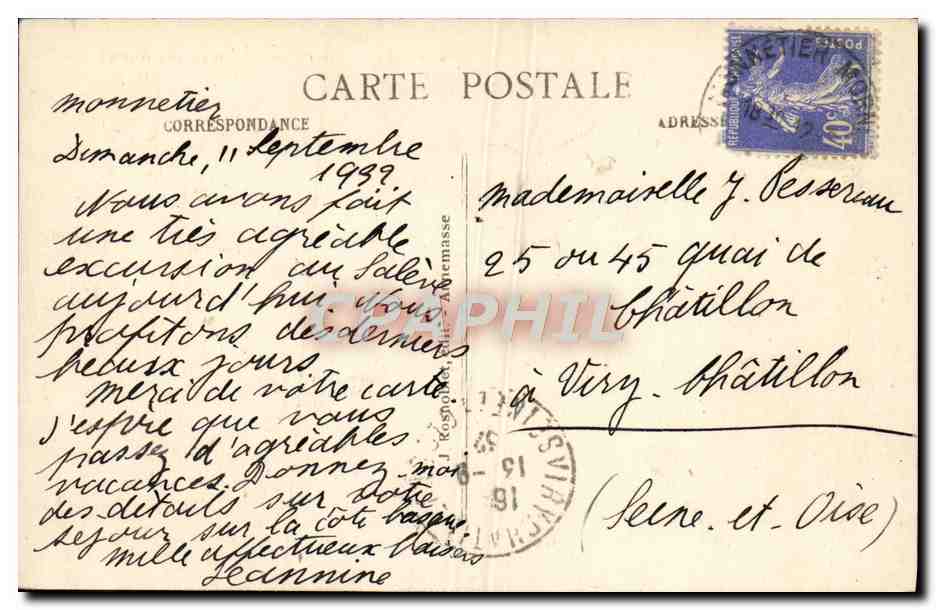 CARTE POSTALE
CORRESPONDANCE
ADRESSE
Monnetier
Dimanche, 11 Septembre
1932
Nous avons fait
une très agréable
excursion au Salève
aujourd'hui. Nous
profitons des derniers
beaux jours
Merci de votre carte.
J'espère que vous
passez d'agréables
vacances. Donnez moi
des détails sur votre
séjour sur la côte basque
Mille affectueux baisers
Jeannine
J. Rosnoblet, édit., Annemasse
Mademoiselle J. Pessereau
25 ou 45 quai de
Châtillon
à Viry-Châtillon
(Seine-et-Oise)
REPUBLIQUE
POSTES
40c
MONNETIER-MORN
18
VIRY-CHATILLON
16
13 - 9
32
CPAPHIL